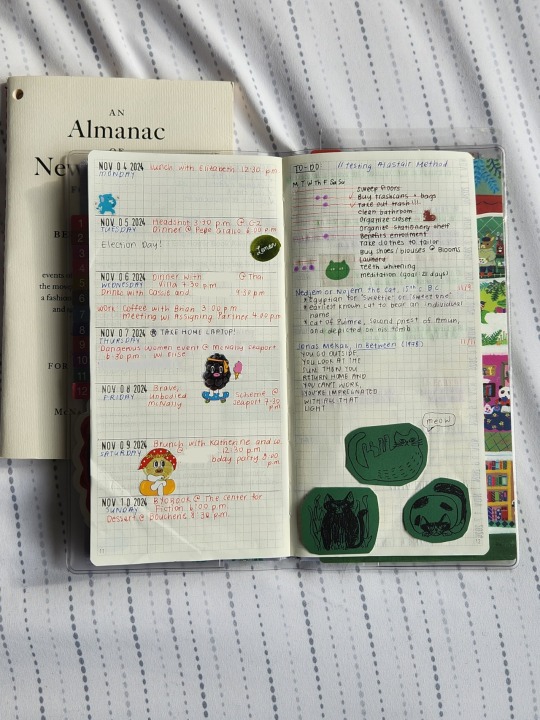 AN
Almanac
OF
New
BE
FOR
NOV 04 2024 Lunch with Elizabeth 12:30 p.m
MONDAY
NOV 05 2024 Headshot 3:30 p.m @
TUESDAY Dinner @ Pepe Giallo 6:00 pm
Election Day!
NOV 06 2024 Dinner with @ Thai
WEDNESDAY Villa 7:30 pm
Drinks with Cassie and 9:30 pm
work Coffee with Brian 3:00 pm
meeting w/ Assigning Partner 4:00 pm
NOV 07 2024 TAKE HOME LAPTOP!
THURSDAY
Dangerous Women event @ McNally Seaport
6:30 pm w/
NOV 08 2024 Brave, @
FRIDAY Unbodied Seaport 7:30
McNally pm
NOV 09 2024 Brunch with Katherine and
SATURDAY @ 12:30 pm
bday party 8:00
pm
NOV 10 2024 @ The Center for
SUNDAY Fiction 6:00 pm
Dessert @ 8:30 pm
TO-DO // Testing Alastair Method
M T W Th F Sa Su
Sweep floors
Buy trashcans + bags
Take out trash!!!
Clean bathroom
Organize closet
Organize stationery shelf
Benefits enrollment
Take clothes to tailor
Buy shoes/blouses @ Blooms
Laundry
Teeth whitening
meditation (goal: 5 days!)
Nedjem or Nojem the cat, 15th c B.C
*Egyptian for "sweetie" or "sweet one"
*earliest known cat to bear an individual
name
*cat of Puimre, second priest of Amun,
and depicted on his tomb
Jonas Mekas, in Between (1978)
YOU GO OUTSIDE
YOU LOOK AT THE
SUN & THEN YOU
RETURN HOME AND
YOU CAN'T WORK,
YOU'RE IMPREGNATED
WITH ALL THAT
LIGHT
meow